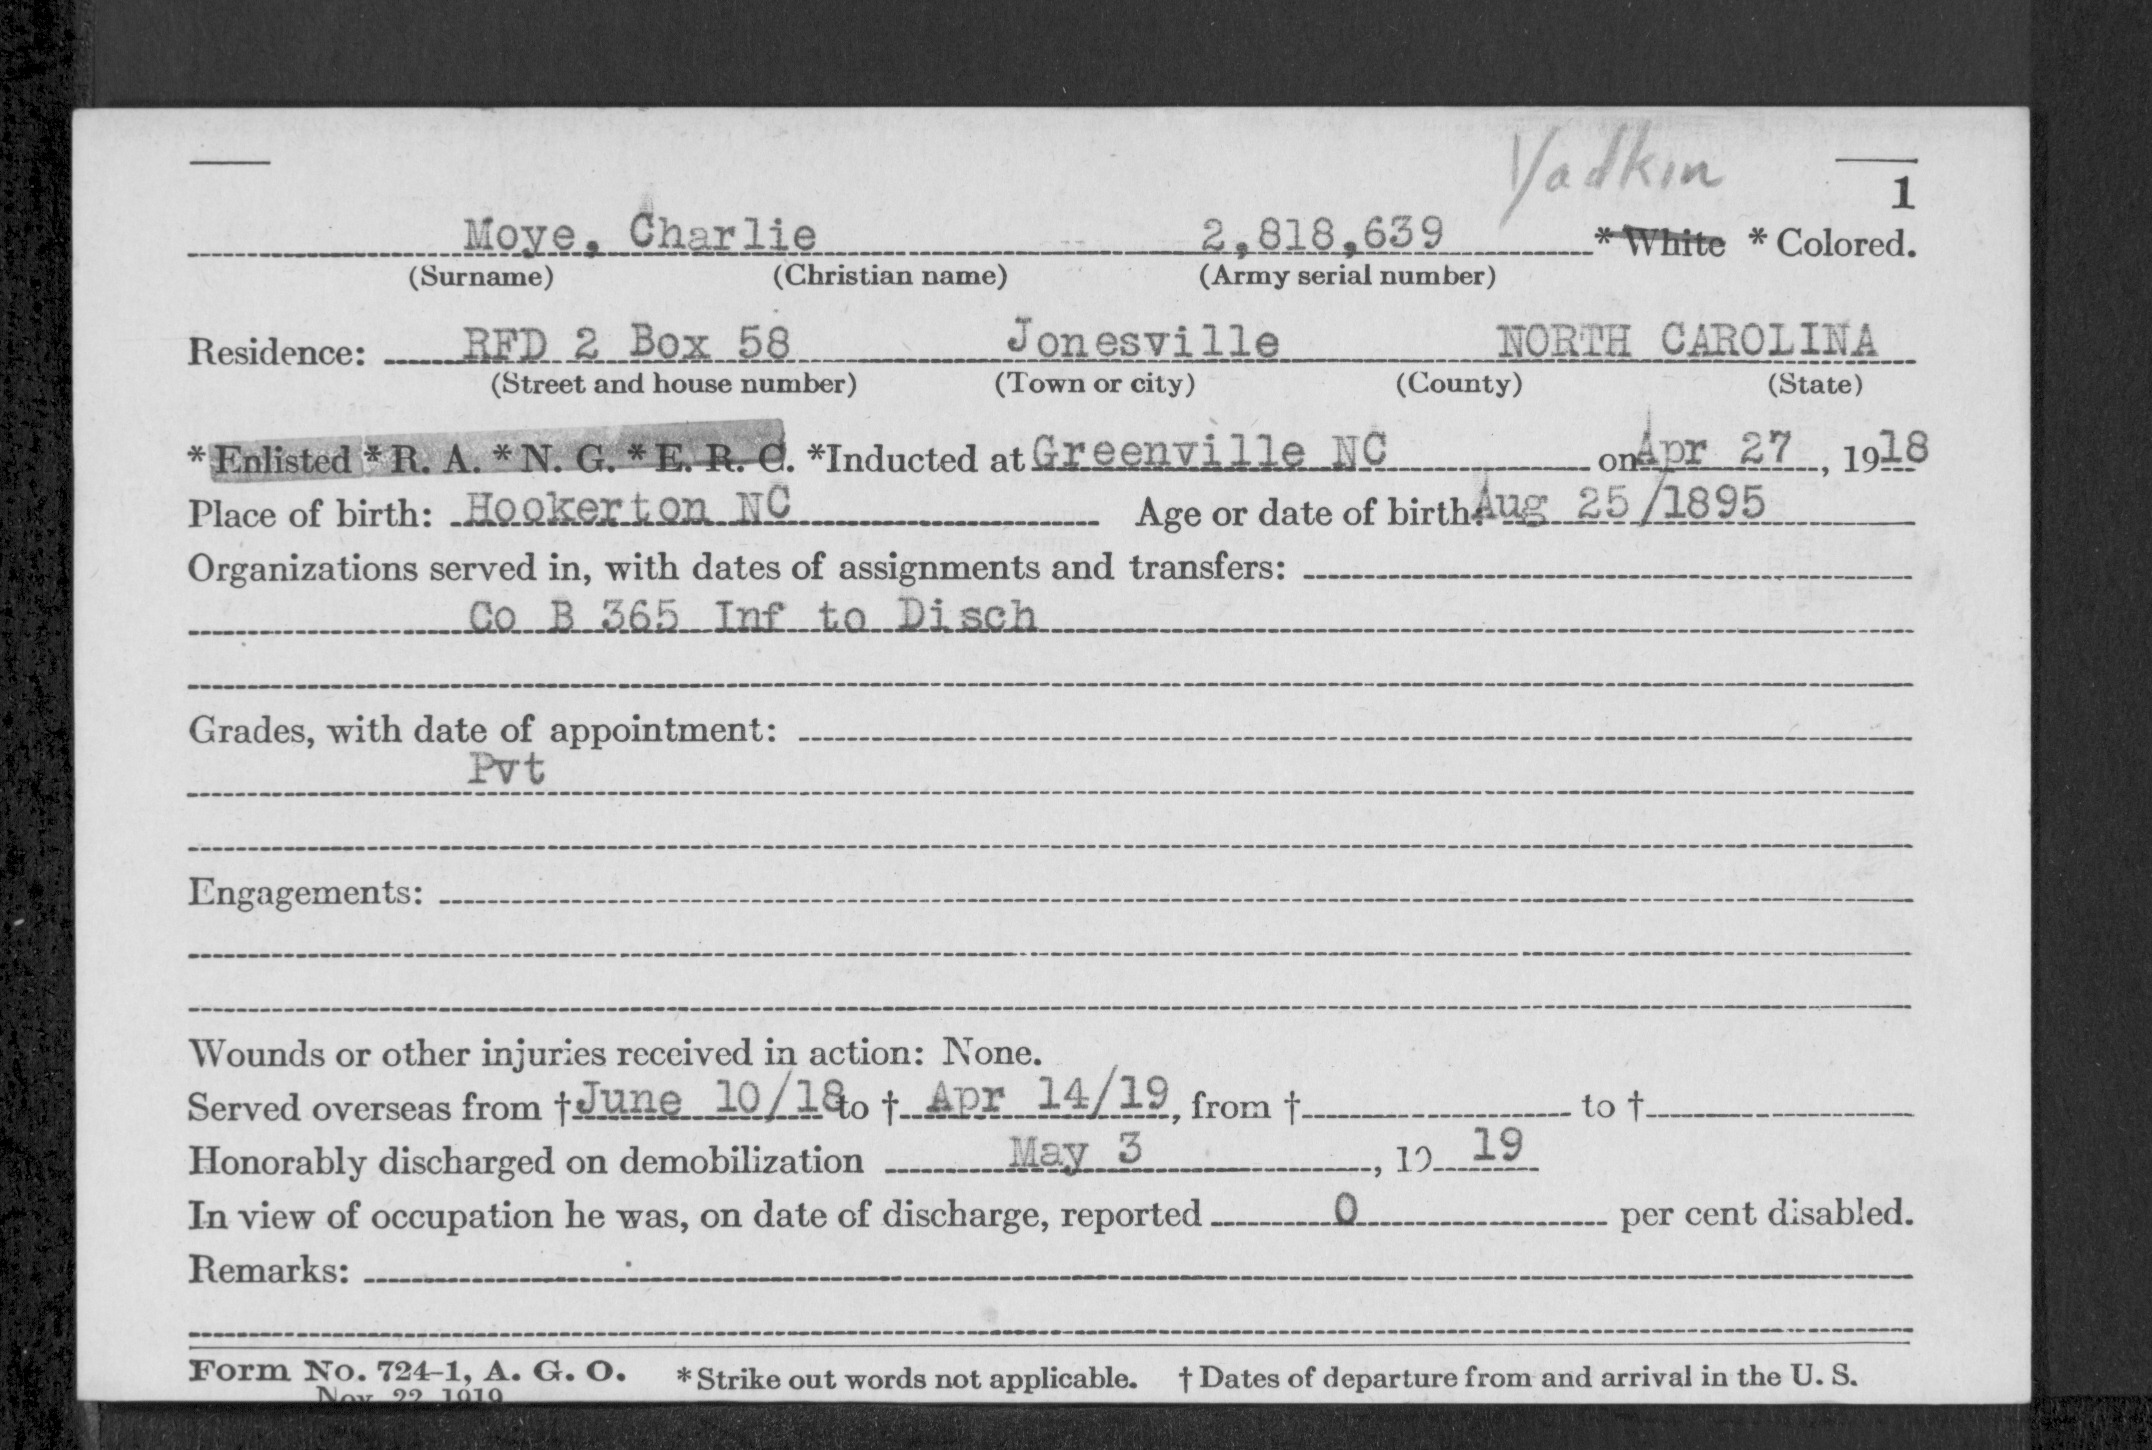 Yadkin
1
Moye, Charlie 2,818,639 * White * Colored.
(Surname) (Christian name) (Army serial number)
Residence: RFD 2 Box 58 Jonesville NORTH CAROLINA
(Street and house number) (Town or city) (County) (State)
* Enlisted * R. A. * N. G. * E. R. C. *Inducted at Greenville NC on Apr 27, 1918
Place of birth: Hookerton NC Age or date of birth: Aug 25/1895
Organizations served in, with dates of assignments and transfers:
Co B 365 Inf to Disch
Grades, with date of appointment:
Pvt
Engagements:
Wounds or other injuries received in action: None.
Served overseas from † June 10/18 to † Apr 14/19, from † to †
Honorably discharged on demobilization May 3, 19 19
In view of occupation he was, on date of discharge, reported 0 per cent disabled.
Remarks:
Form No. 724-1, A. G. O. * Strike out words not applicable. † Dates of departure from and arrival in the U. S.
Nov. 22 1919